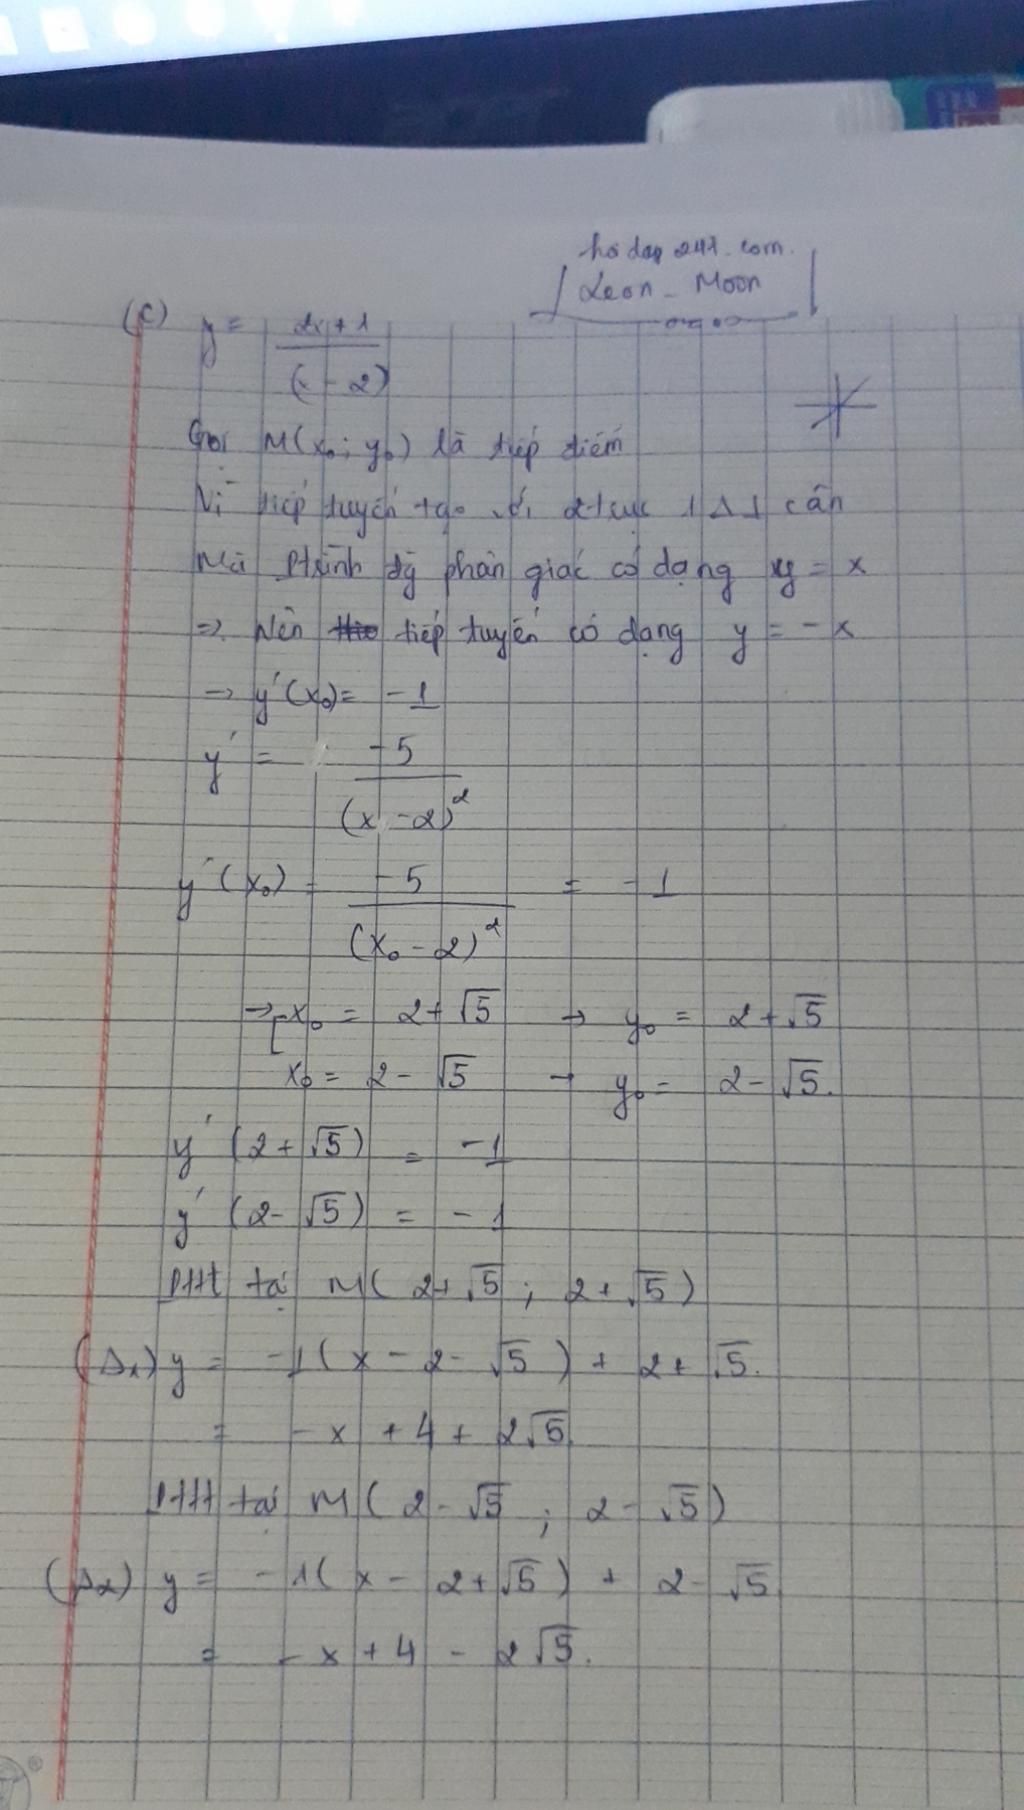 hỏi đáp 247.com.
Leon - Moon
(C) y = 2x+1 / (x-2)
Gọi M(x₀; y₀) là tiếp điểm
Vì tiếp tuyến tạo với 2 trục 1 Δ ⊥ cân
Mà Ptrình đg phân giác có dạng y = x
⇒ Nên tiếp tuyến có dạng y = -x
→ y'(x₀) = -1
y' = -5 / (x-2)²
y'(x₀) = -5 / (x₀-2)² = -1
→ [ x₀ = 2+√5 → y₀ = 2+√5
x₀ = 2-√5 → y₀ = 2-√5.
y'(2+√5) = -1
y'(2-√5) = -1
Pttt tại M(2+√5; 2+√5)
(Δ₁) y = -1(x-2-√5) + 2+√5.
= -x + 4 + 2√5
Pttt tại M(2-√5; 2-√5)
(Δ₂) y = -1(x-2+√5) + 2-√5
= -x + 4 - 2√5.